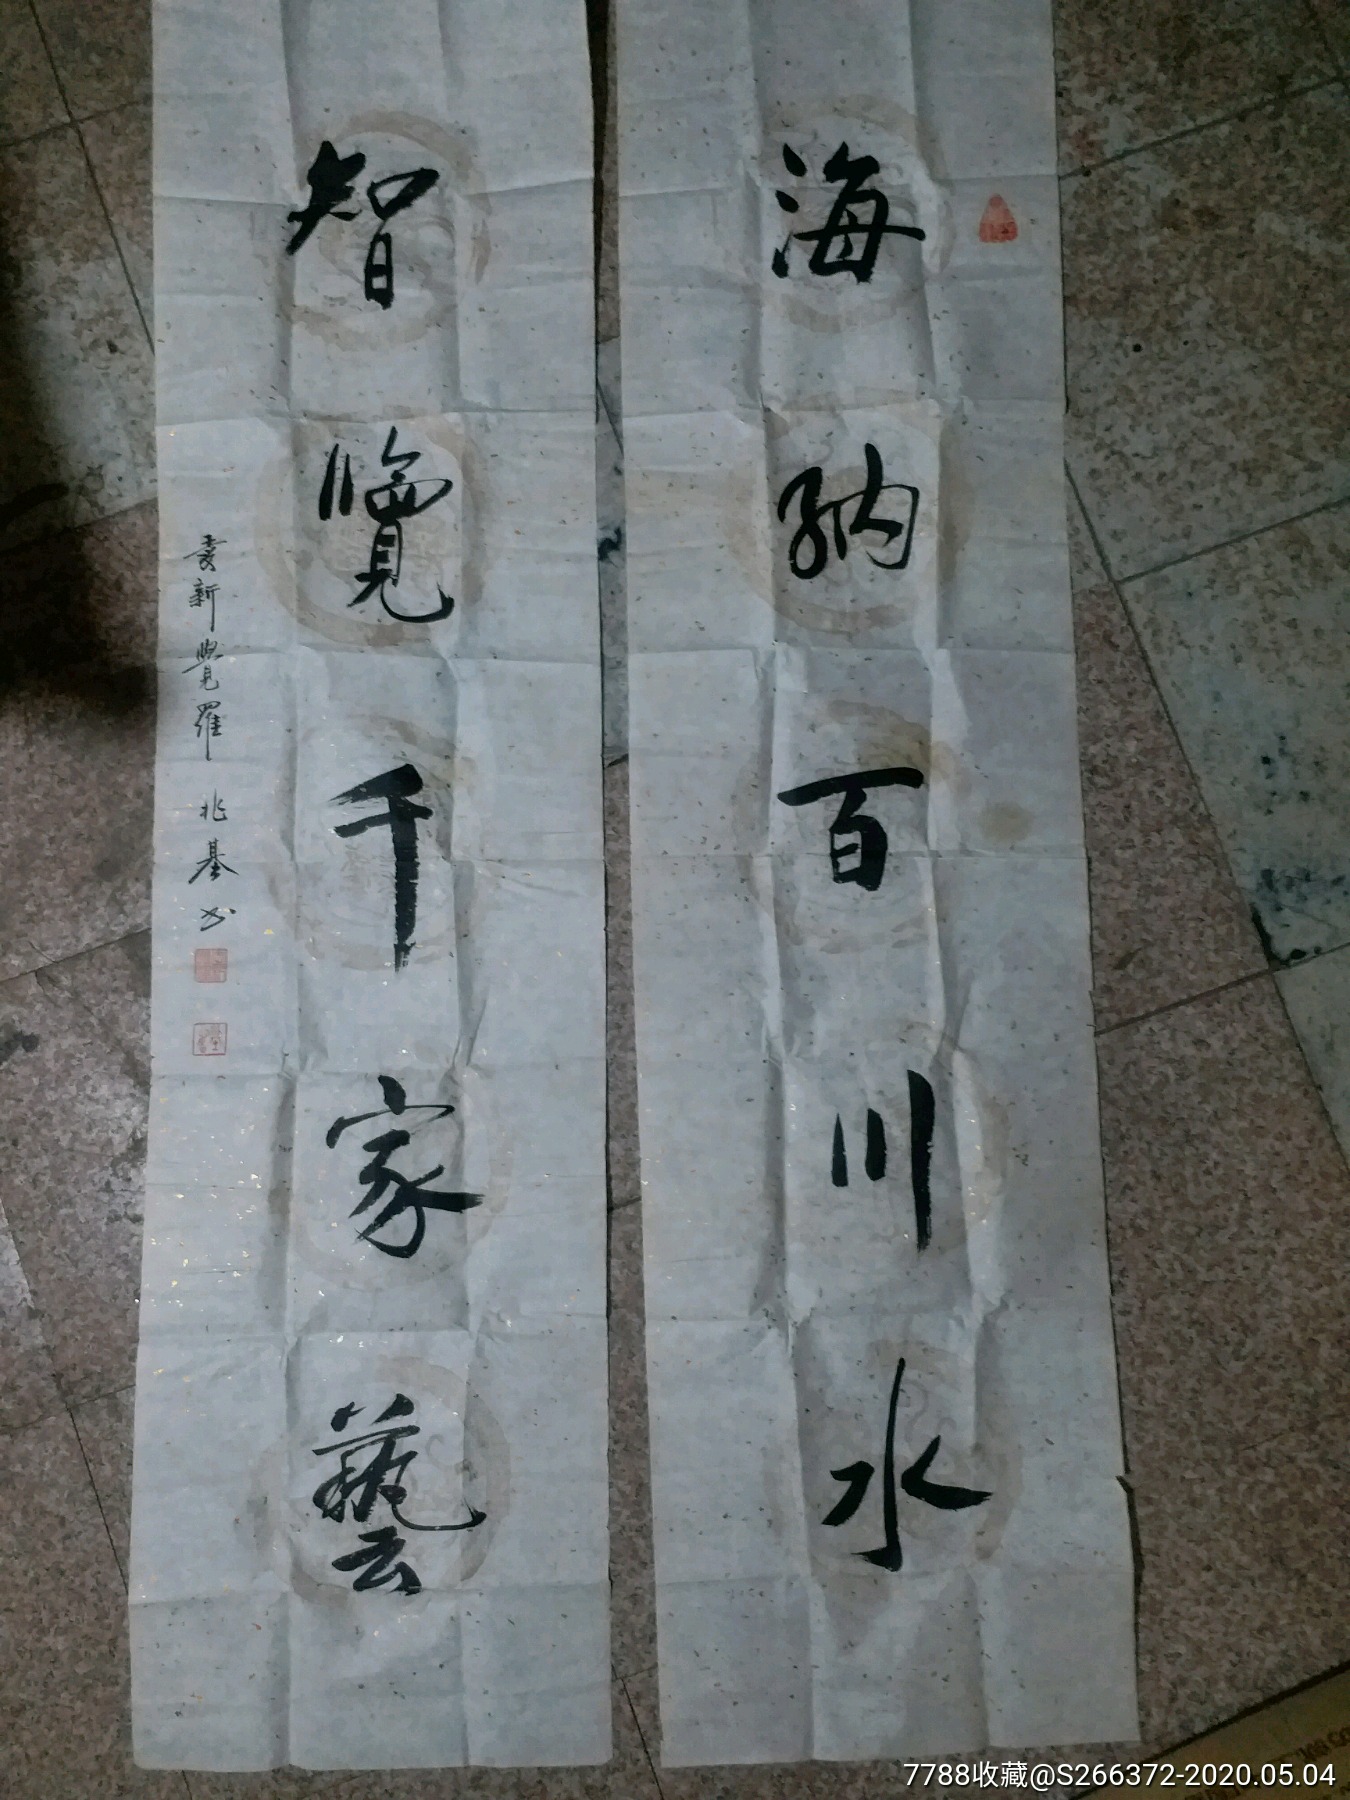 海納百川水
智覽千家藝
愛新覺羅 兆基书
7788收藏@S266372-2020.05.04